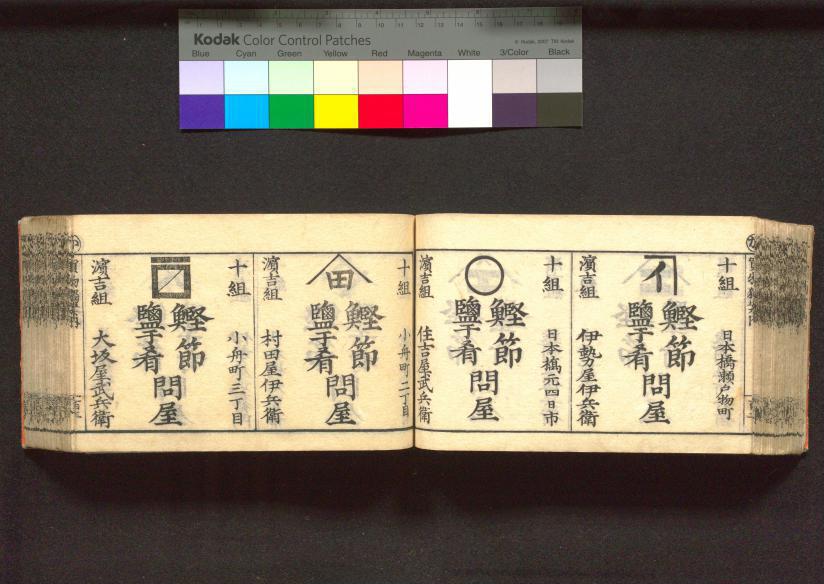 Kodak Color Control Patches
© Kodak, 2007 TM: Kodak
Blue Cyan Green Yellow Red Magenta White 3/Color Black
十組
日本橋瀬戸物町
イ
鰹節
鹽干肴
問屋
濱吉組
伊勢屋伊兵衛
十組
日本橋元四日市
鰹節
鹽干肴
問屋
濱吉組
住吉屋武兵衛
十組
小舟町二丁目
田
鰹節
鹽干肴
問屋
濱吉組
村田屋伊兵衛
十組
小舟町三丁目
鰹節
鹽干肴
問屋
濱吉組
大坂屋武兵衛